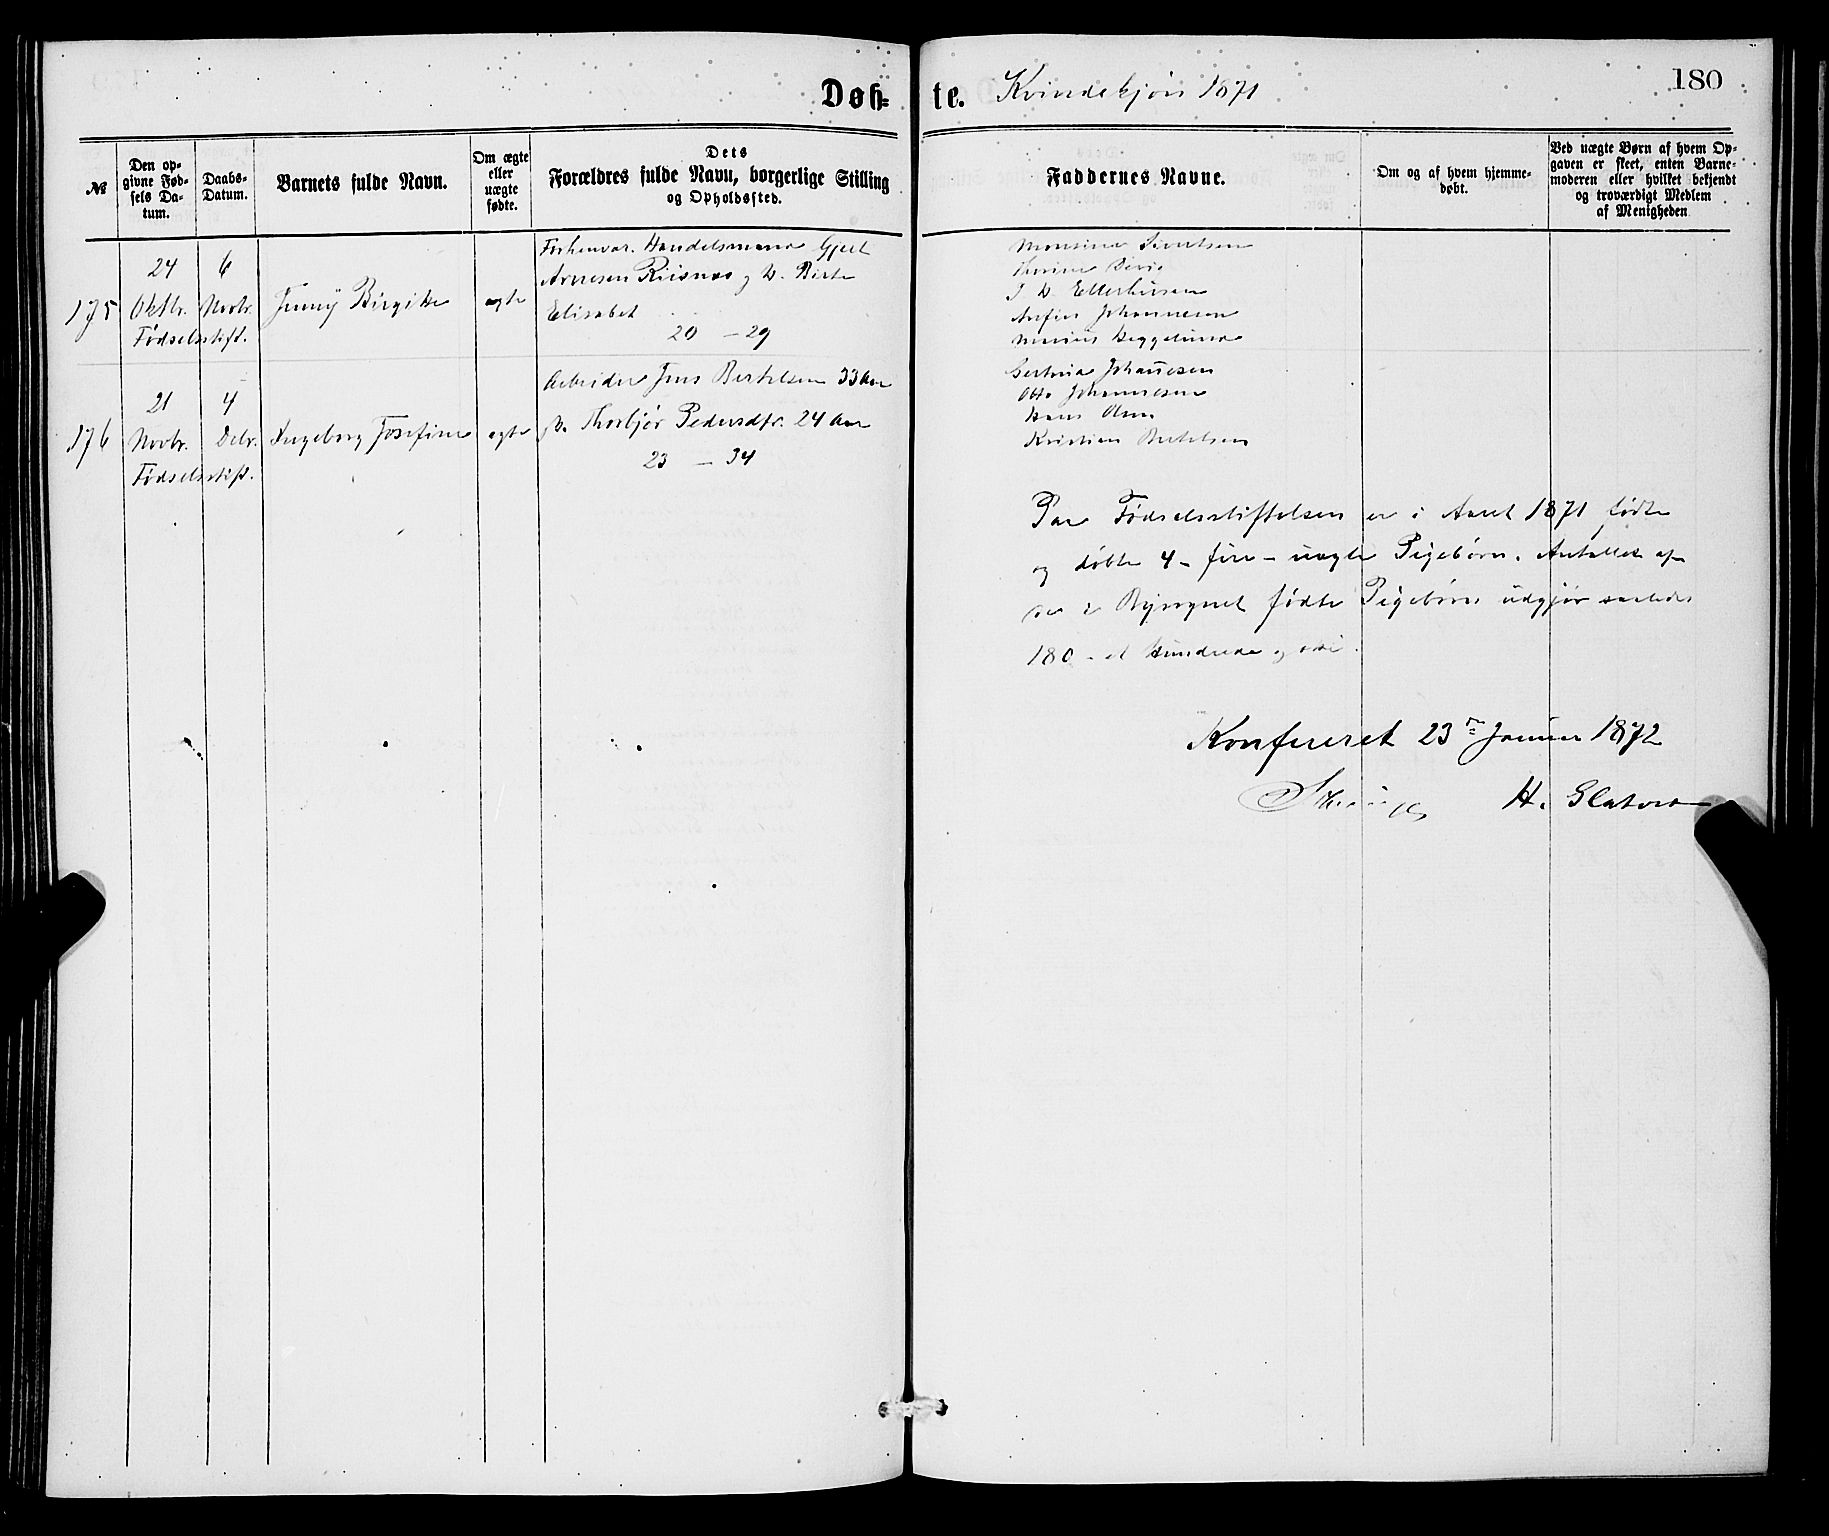 Døb-
te. Kvindekjøn 1871
180
№
Den op-
givne Fød-
sels Da-
tum.
Daabs-
Datum.
Barnets fulde Navn.
Om ægte
eller
uægte
fødte.
Dets
Forældres fulde Navn, borgerlige Stilling
og Opholdssted.
Faddernes Navne.
Om og af hvem hjemme-
døbt.
Ved uægte Børn af hvem Op-
gaven er skeet, enten Barne-
moderen eller hvilket bekjendt
og troværdigt Medlem
af Menigheden
175
24
Oktbr.
Fødselsstift.
6
Novbr.
Jenny Birgitte
ægte
Forhenvær. Handelsmand Gjert
Arnesen Riisnæs og H. Birte
Elisabet
20 - 29
Monsine Sivertsen
J. W. Ellerhusen
Anfin Johannesen
176
21
Novbr.
Fødselsstift.
4
Debr.
Ingeborg Josefine
ægte
Arbeider Jens Bertelsen 33 Aar
Thorbjør Pedersdtr. 24 Aar
23 - 34
Gertine Johanesen
Otto Johannesen
Hans Olsen
Kristian Bertelsen
Paa Fødselsstiftelsen er i Aaret 1871 fødte
og døbte 4 - fire - uægte Pigebørn. Antallet af
i Bysognet fødte Pigebørn udgjør saaledes
180 - et Hundrede og otti.
Konfereret 23de Januar 1872
H.